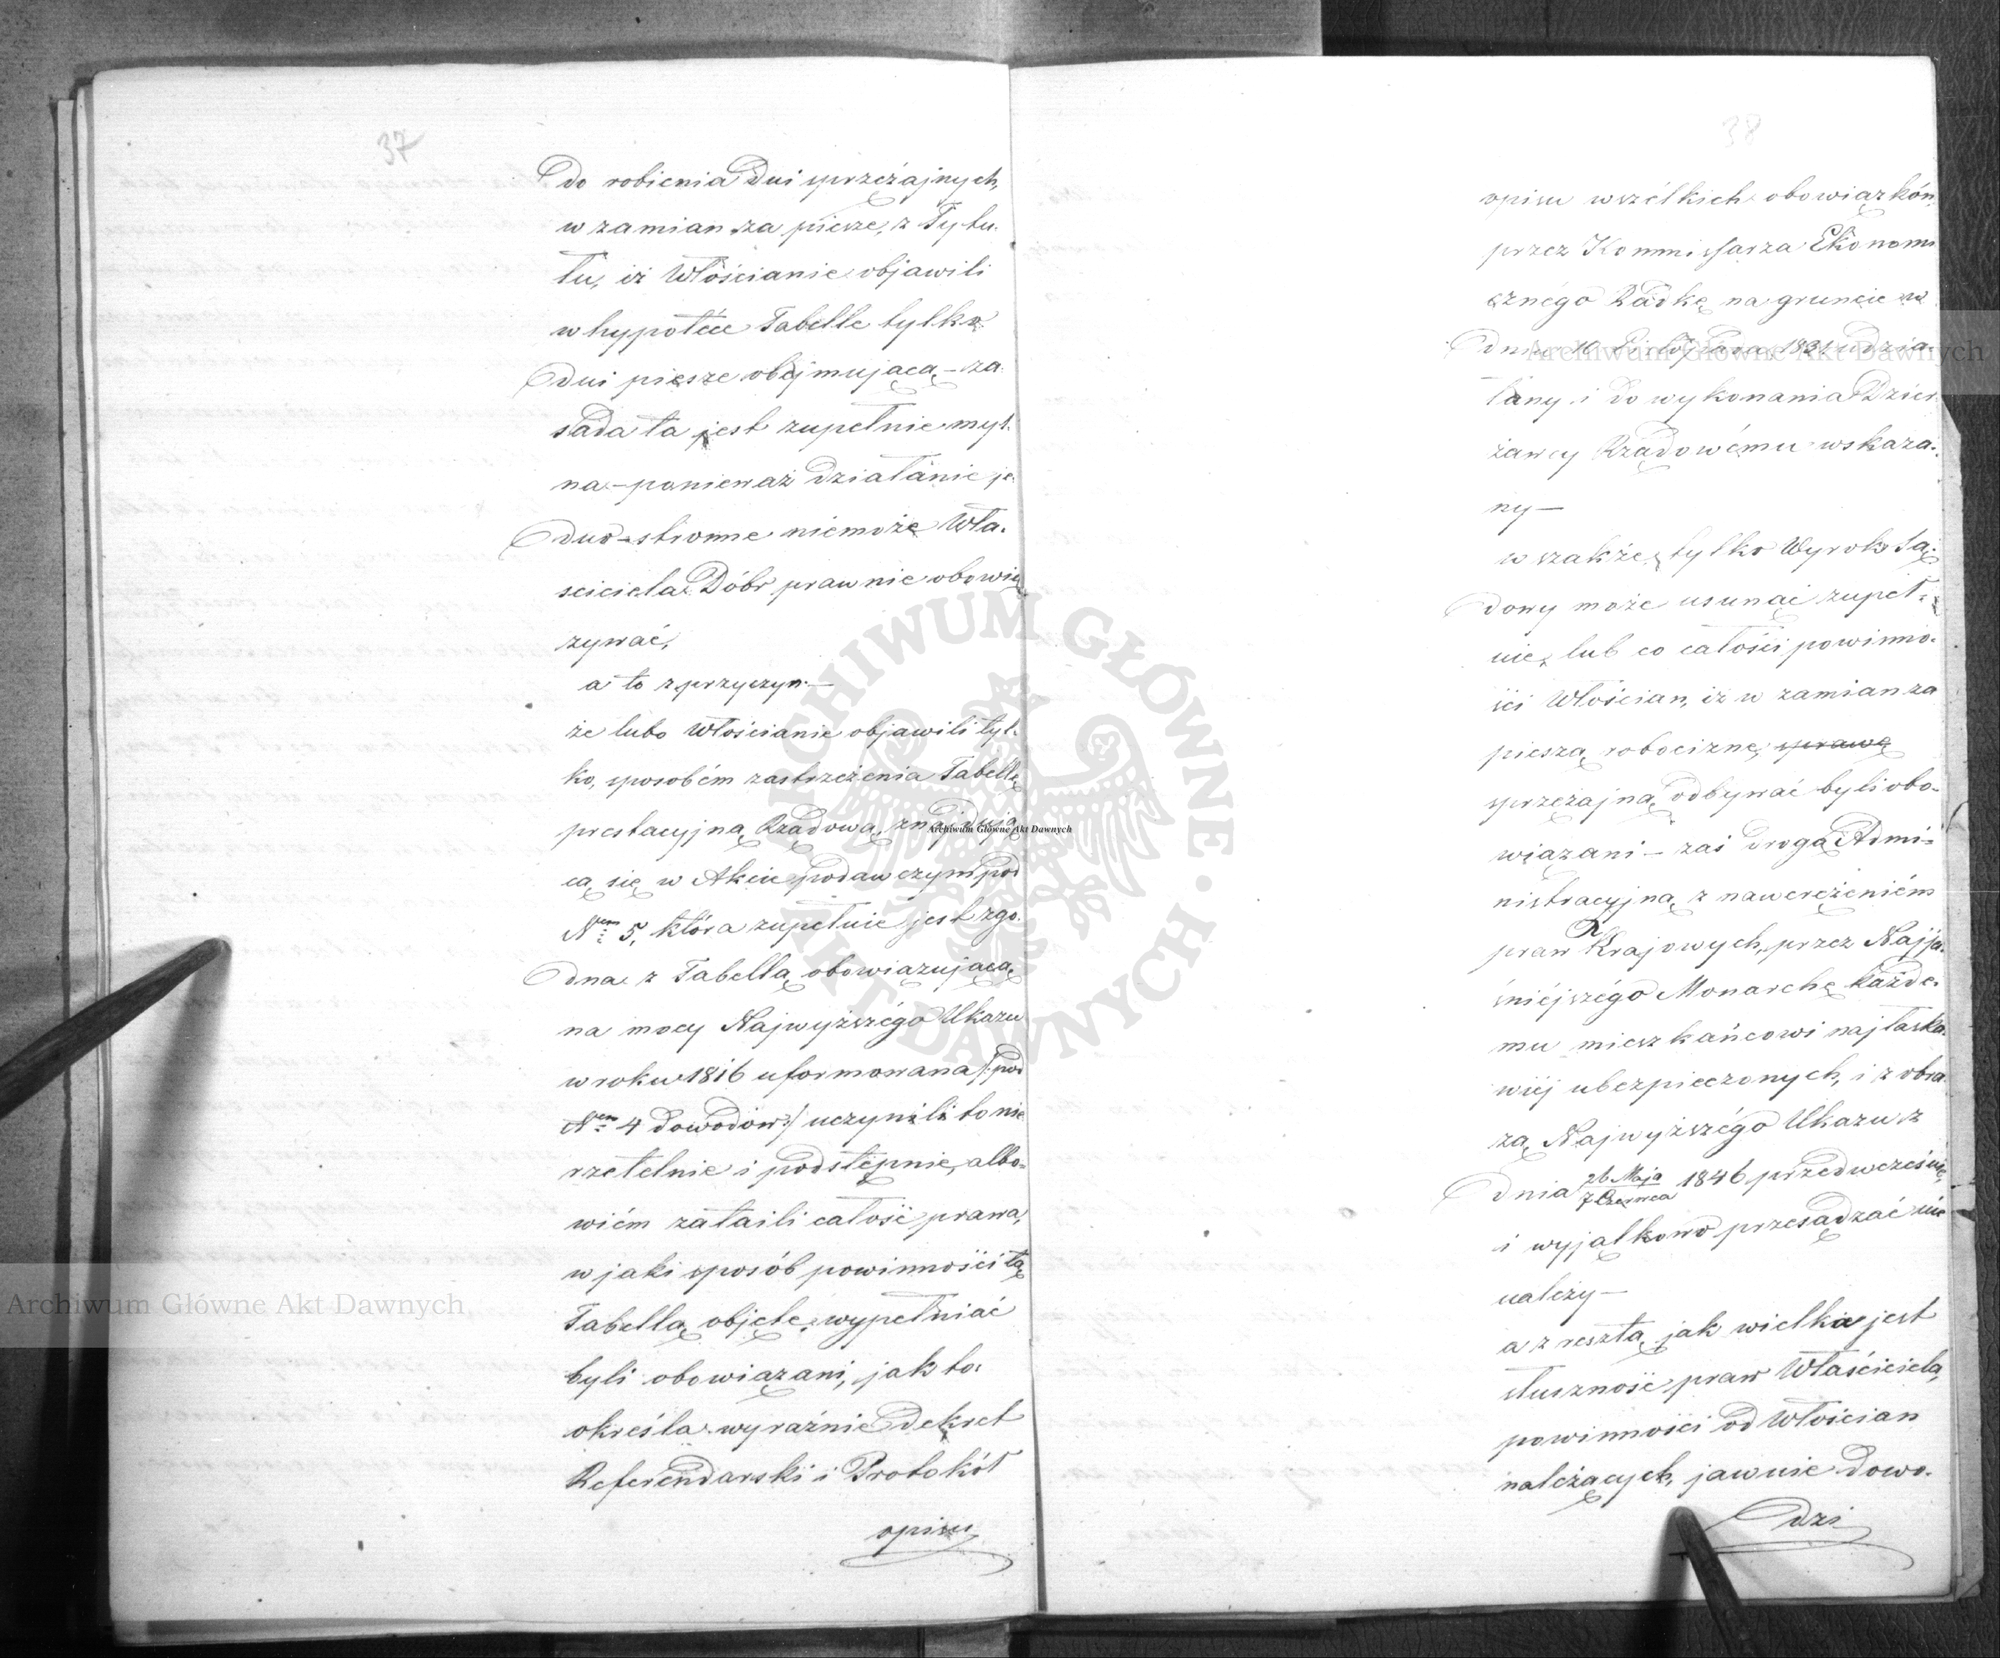 37
do robienia Dni sprzężajnych,
w zamian za piesze, z Tytu-
łu, iż Włościanie objawili
w hypotece Tabelle tylko
Dni piesze objmującą – za-
sada ta jest zupełnie myl-
na – ponieważ Działanie je-
dno-stronne niemoże Wła-
ściciela Dóbr prawnie obowią
zywać,
a to z przyczyn: –
że lubo Włościanie objawili tyl-
ko, sposobém zastrzeżenia Tabellę
prestacyjną Rządową, znajdują
cą się w Akcie podawczym pod
Nem 5, która zupełnie jest zgo-
dna z Tabellą obowiązującą
na mocy Najwyższégo Ukazu
w roku 1816 uformowana /: pod
Nem 4 dowodów :/ uczynili to nie
rzetelnie i podstępnie, albo-
wiém zataili całość prawa,
w jaki sposób powinności tą
Tabellą objęte, wypełniać
byli obowiązani, jak to
określa wyraźnie Dekret
Referendarski i Protokół
opisu
38
opisu wszélkich obowiązków
przez Kommissarza Ekonomi
cznégo Radkę na gruncie w
dniu 10 1831 zdzia-
łany i do wykonania Dzier
żawcy Rządowému wskaza-
ny –
wszakże, tylko Wyrok Są-
dowy może usunąć zupeł-
nie, lub co całości powinno-
ści Włościan, iż w zamian za
pieszą robociznę, sprawę
sprzężajną odbywać byli obo-
wiązani – zaś drogą Admi-
nistracyjną z nawerężeniém
praw Krajowych, przez Najja-
śniéjszégo Monarchę każde-
mu mieszkańcowi najłaska-
wiéj ubezpieczonych, i z obra
zą Najwyższégo Ukazu z
dnia 26 Maja/7 Czerwca 1846 przedwcześnie,
i wyjątkowo przesądzać nie
należy –
a z resztą jak wielka jest
słuszność praw Właściciela,
powinności od Włościan
należących, jawnie dowo-
dzi
Archiwum Główne Akt Dawnych
Archiwum Główne Akt Dawnych
Archiwum Główne Akt Dawnych
ARCHIWUM GŁÓWNE AKT DAWNYCH